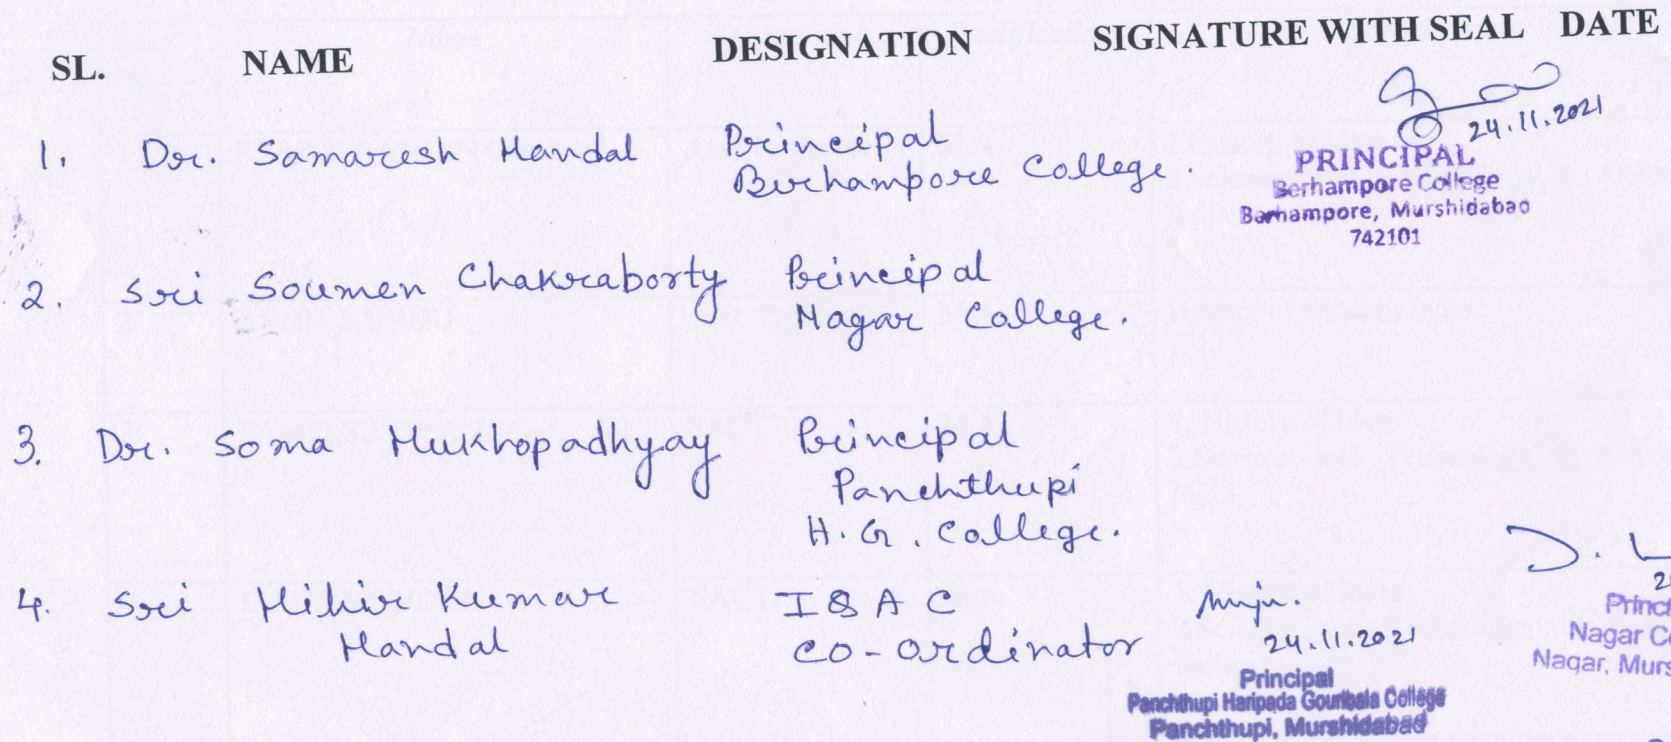 SL. NAME DESIGNATION SIGNATURE WITH SEAL DATE
24.11.2021
1. Dr. Samaresh Mandal Principal
Berhampore College.
PRINCIPAL
Berhampore College
Berhampore, Murshidabad
742101
2. Sri Soumen Chakraborty Principal
Nagar College.
3. Dr. Soma Mukhopadhyay Principal
Panchthupi
H.G. College.
4. Sri Mihir Kumar I Q A C
Mandal Co-ordinator
24.11.2021
Principal
Panchthupi Haripada Gouribala College
Panchthupi, Murshidabad
D.
Nagar
Nagar,